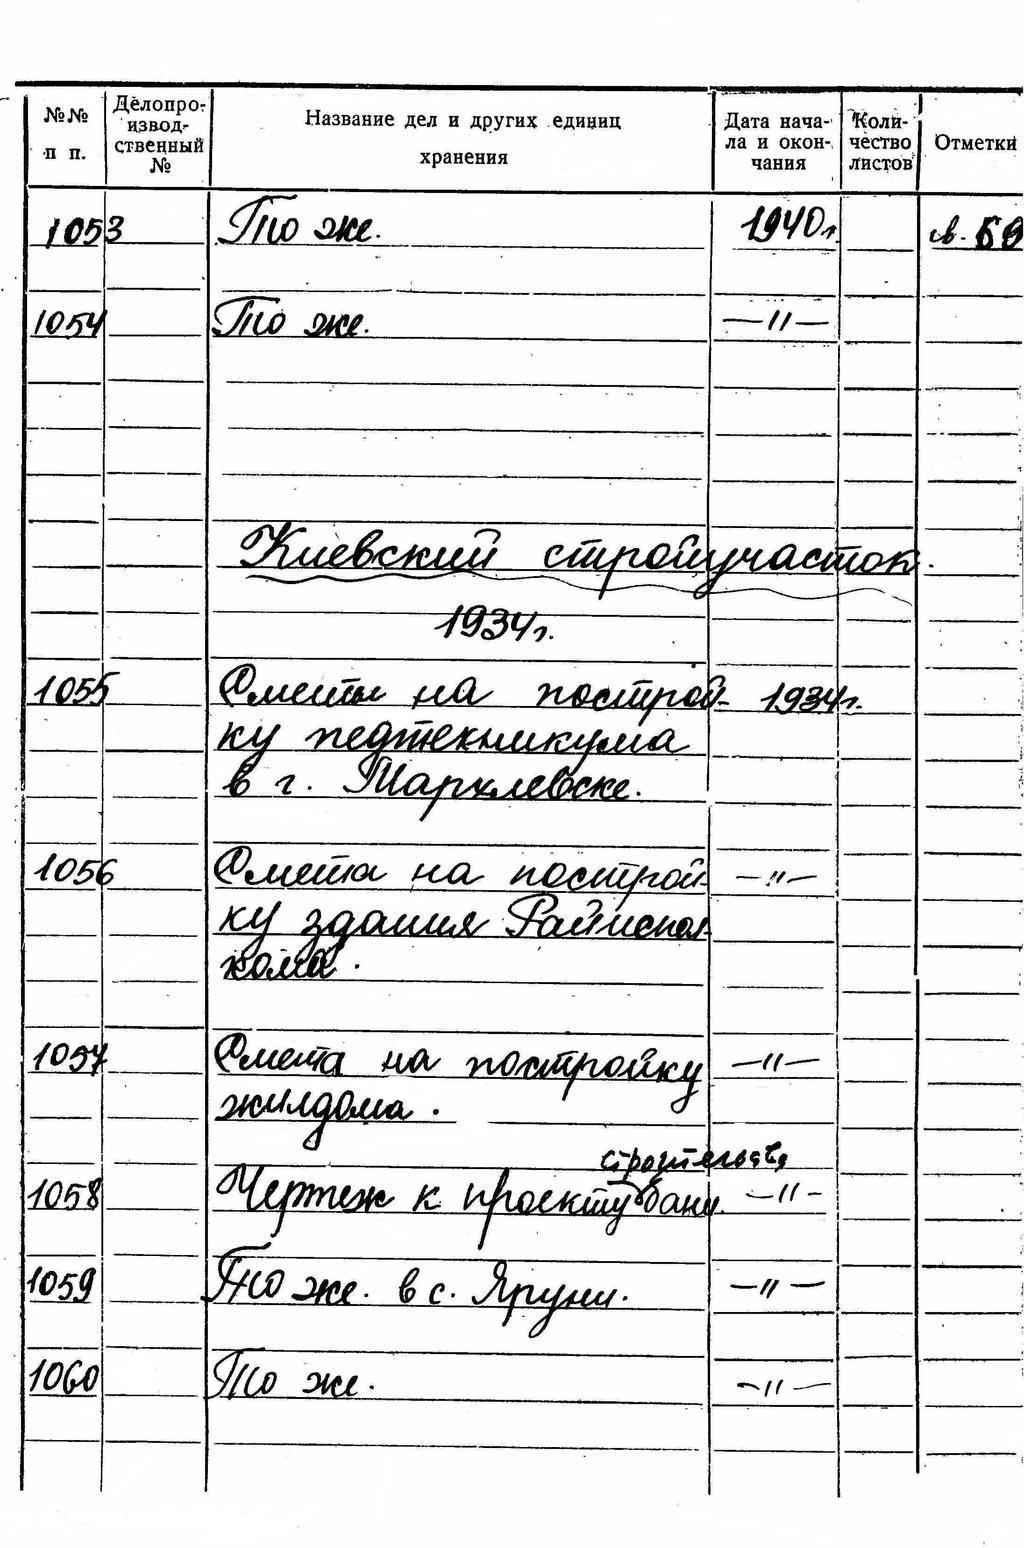 №№ п п. Делопроизвод- ственный № Название дел и других единиц хранения Дата нача- ла и окон- чания Коли- чество листов Отметки
1053 То же. 1940г. св.
1054 То же. —"—
Киевский стройучасток.
1934г.
1055 Сметы на построй- 1934г.
ку педтехникума
в г. Мархлевске.
1056 Смета на построй- —"—
ку здания Райиспол-
кома.
1057 Смета на постройку —"—
жилдома.
строительства
1058 Чертеж к проекту бани. —"—
1059 То же. в с. Яруни. —"—
1060 То же. —"—